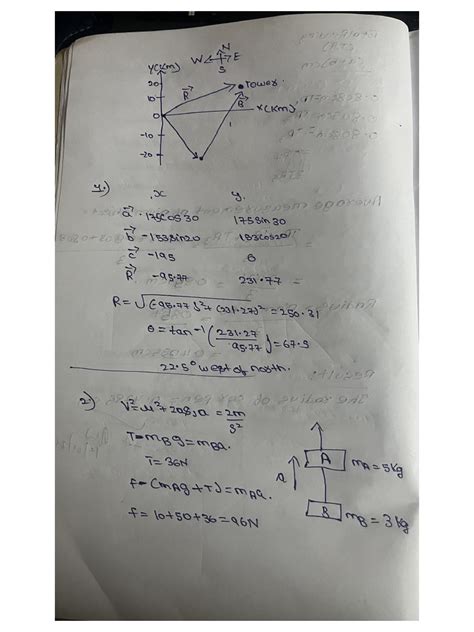 N
W E
S
y(km)
20
10
0
-10
-20
R
B
Tower.
x(km)
1.)
x y
a 175cos30 175sin30
b -153sin20 153cos20
c -195 0
R -95.77 231.77
R = √(-95.77)²+(231.27)² = 250.31
θ = tan-1(231.27/95.77) = 67.5
22.5° west of north.
2) V²=u²+2as, a = 2m/s²
T = mBg = mBa.
T = 36N
f - (mAg + T) = mAa.
f = 10+50+36 = 96N
a
A mA = 5Kg
B mB = 3kg